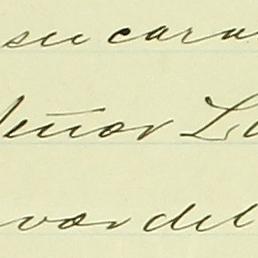 su cara
Señor L
vor del